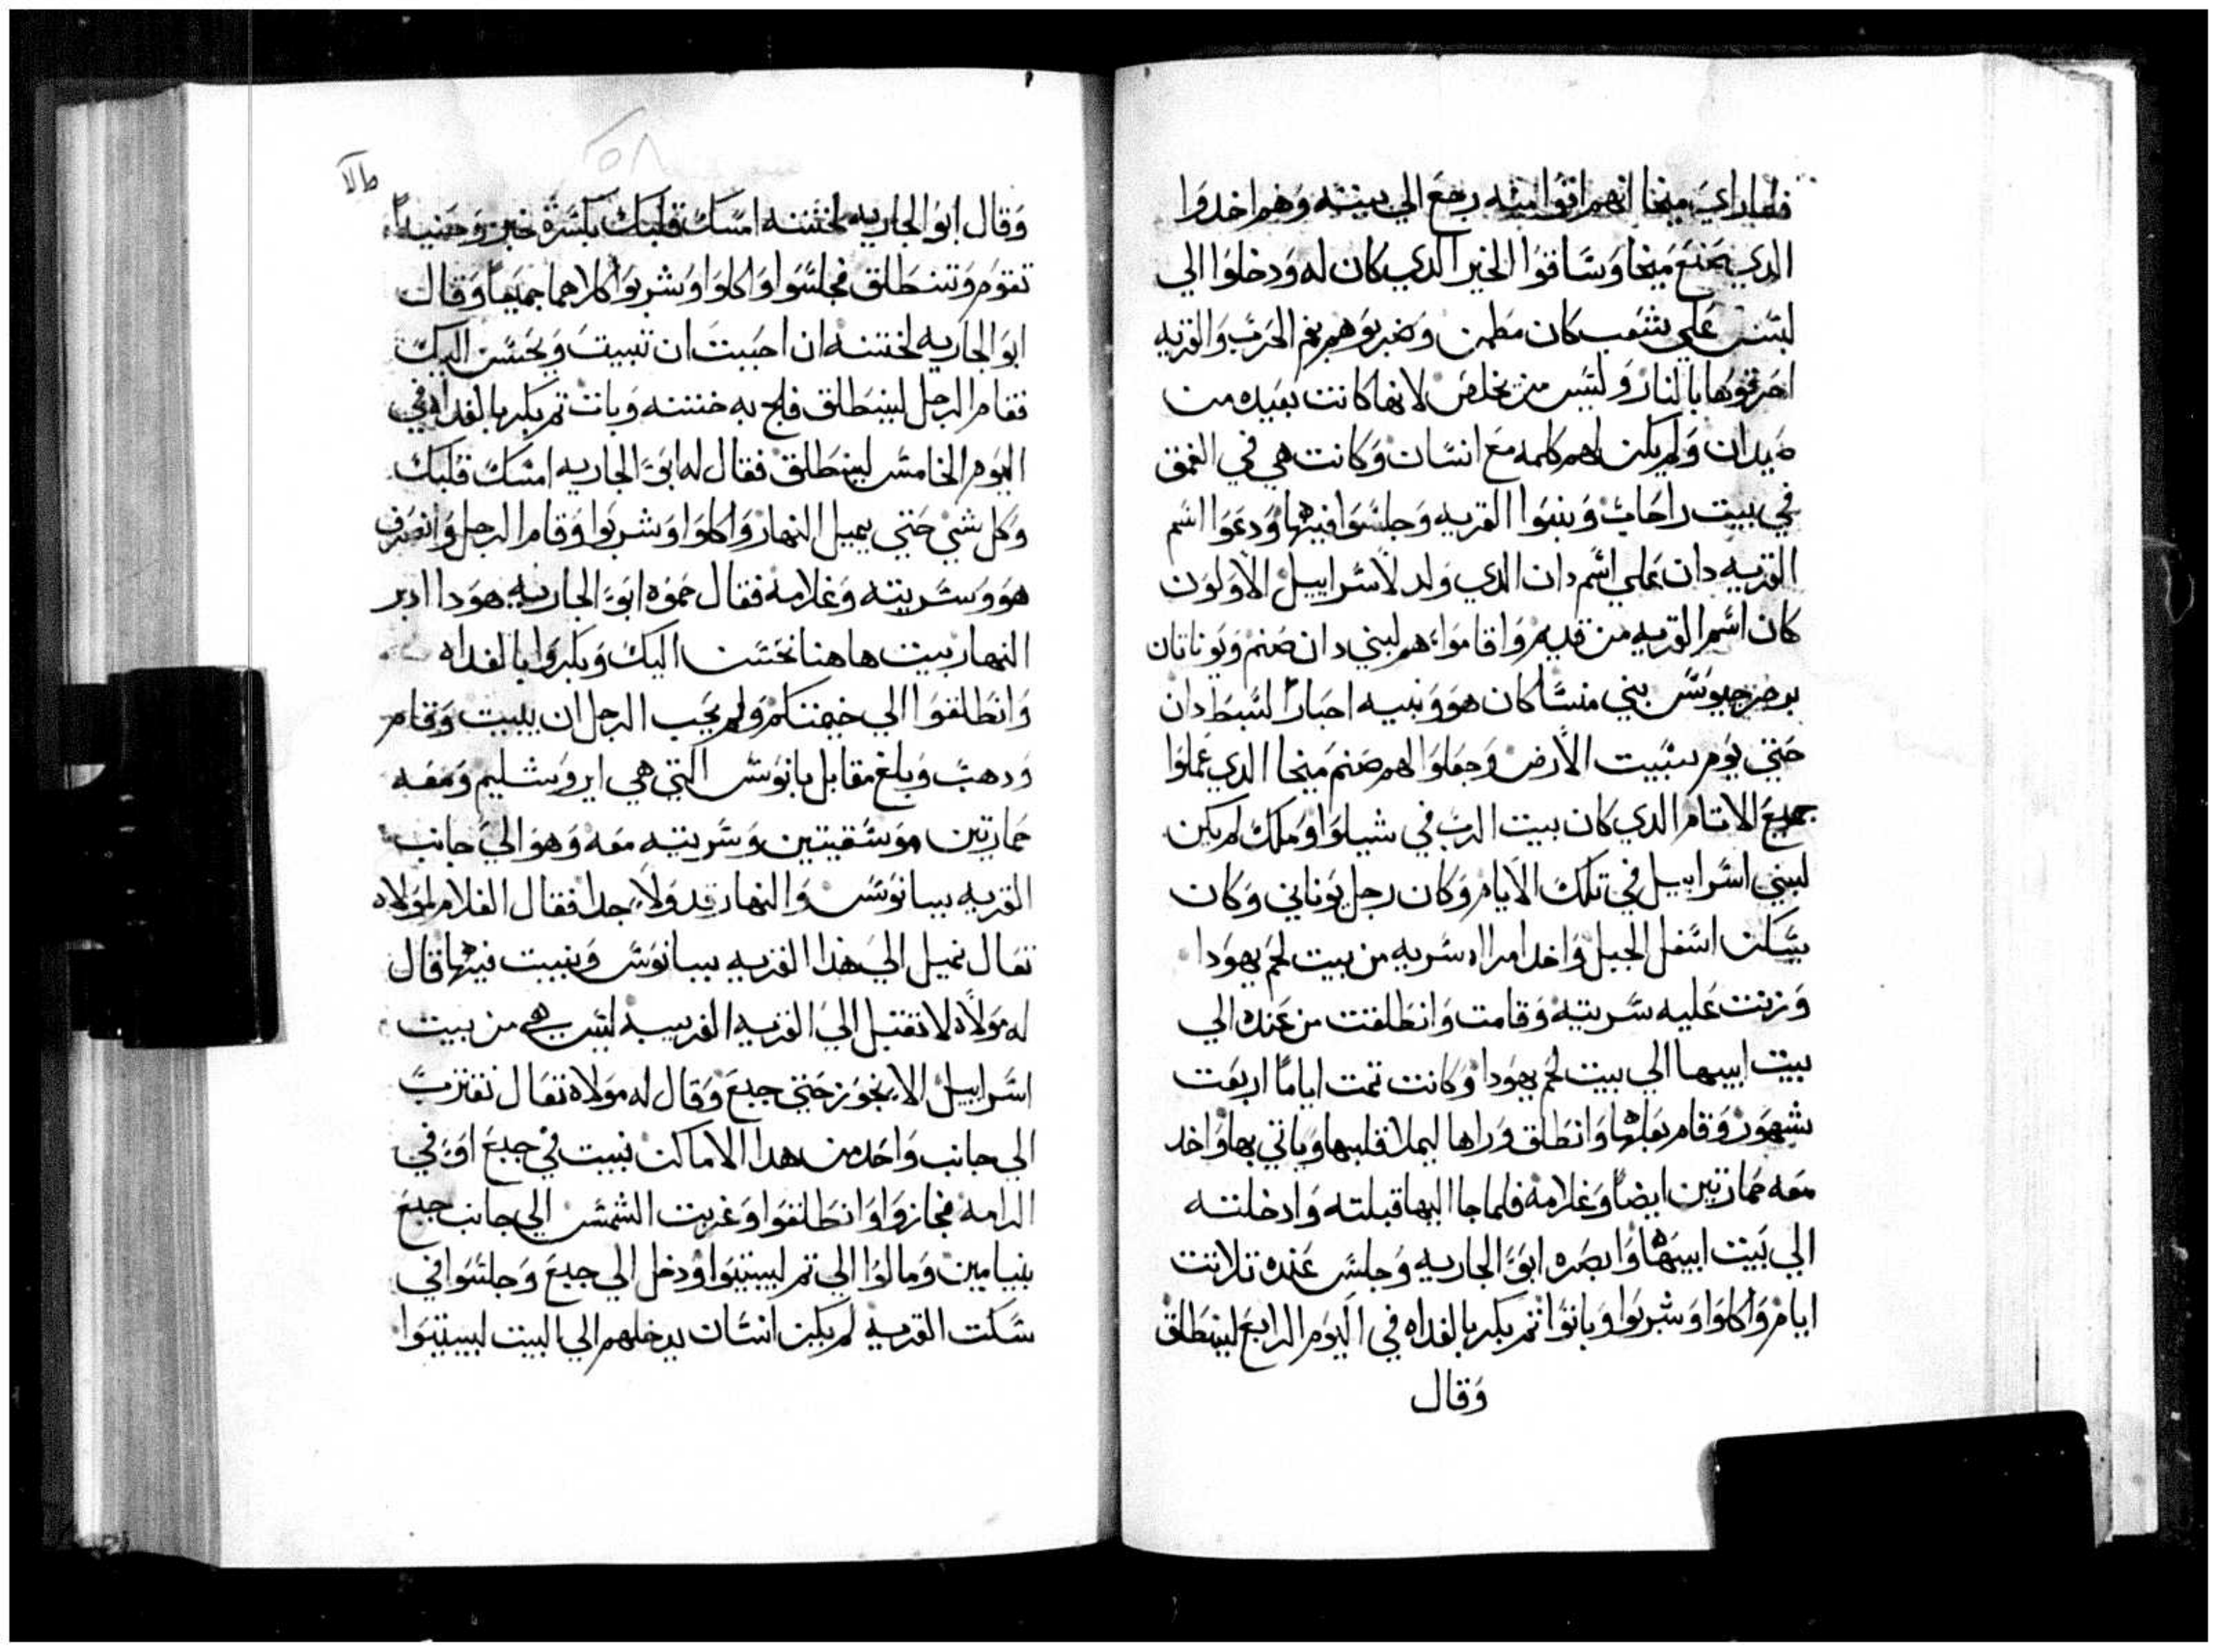 فلما راي ميخا انهم اقوا منه رجع الي بيته وهم اخدوا
الدي صنع ميخا وساقوا الخير الدي كان له ودخلوا الي
لبسس علي شعب كان مطمن وضربوهم بفم الحرب والقريه
احرقوها بالنار وليس من يخلص لانها كانت بعيده من
صيدان ولم يكن لهم كلمه مع انسان وكانت هي في العمق
في بيت راحاب وبنوا القريه وجلسوا فيها ودعوا اسم
القريه دان علي اسم دان الدي ولد لاسراييل الاولون
كان اسم القريه من قديم واقاموا لهم لبني دان صنم ويوناتان
بن جرجيوس بني منسا كان هو وبنيه احبارا لسبط دان
حتي يوم سبيت الارض وجعلوا لهم صنم ميخا الدي عملوا
جميع الايام الدي كان بيت الرب في شيلوا وملك لم يكن
لبني اسراييل في تلك الايام وكان رجل يوناني وكان
يسكن اسفل الجبل واخد امراه سريه من بيت لحم يهودا
وزنت عليه سريته وقامت وانطلقت من عنده الي
بيت ابيها الي بيت لحم يهودا وكانت تمت اياما اربعت
شهور وقام بعلها وانطلق وراها ليملا قلبها وياتي بها واخد
معه حمارتين ايضا وغلامه فلما جا اليها قبلته وادخلته
الي بيت ابيها وابصره ابو الجاريه وجلس عنده تلاتت
ايام واكلوا وشربوا وباتوا تم بكر بالغداه في اليوم الرابع لينطلق
وقال
وقال ابو الجاريه لختنه امسك قلبك بكسرة خبز وحينيد
تقوم وتنطلق فجلسوا واكلوا وشربوا كلاهما جميعا وقال
ابو الجاريه لختنه ان احببت ان تبيت ويحسن اليك
فقام الرجل لينطلق فلج به ختنه وبات تم بكر بالغداه في
اليوم الخامس لينطلق فقال له ابو الجاريه امسك قلبك
وكل شي حتي يميل النهار واكلوا وشربوا وقام الرجل وانصرف
هو وسريته وغلامه فقال حموه ابو الجاريه هودا ادبر
النهار بيت هاهنا نحسن اليك وبكروا بالغداه
وانطلقوا الي خيمتكم ولم يحب الرجل ان يبيت وقام
ودهب وبلغ مقابل يانوس التي هي ايروشليم ومعه
حمارتين موسقيتين وسريته معه وهو الي جانب
القريه يبانوس والنهار قد ولا جدا فقال الغلام لمولاه
تعال نميل الي هدا القريه يبانوس ونبيت فيها قال
له مولاه لا نقبل الي القريه الغريبه ليس هي من بيت
اسراييل الا نجوز حتي جبع وقال له مولاه تعال نقترب
الي جانب واحد من هدا الاماكن نبيت في جبع او في
الرامه فجازوا وانطلقوا وغربت الشمس الي جانب جبع
بنيامين ومالوا الي تم ليبيتوا ودخل الي جبع وجلسوا في
سكت القريه لم يكن انسان يدخلهم الي البيت ليبيتوا